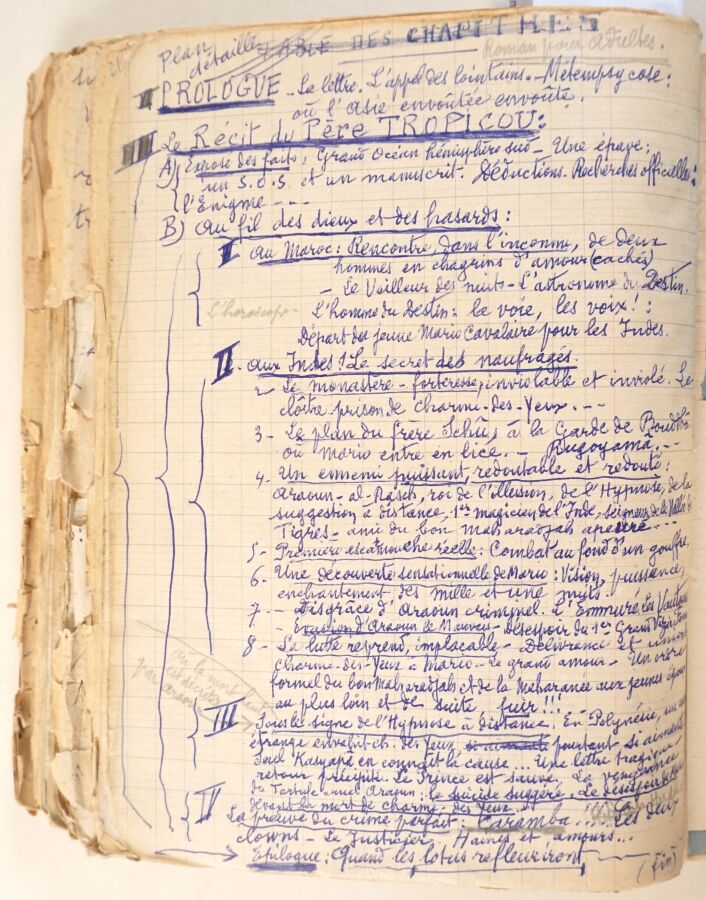 Plan détaillé TABLE DES CHAPITRES
Roman pour Adultes.
PROLOGUE - La lettre. L'appel des lointains. - Métempsycose:
où l'Asie envoûtée envoûte.
Le Récit du Père TROPICOU:
A) Exposé des faits: Grand Océan hémisphère sud - Une épave:
un S.O.S. et un manuscrit. Déductions. Recherches officielles:
l'Enigme - - -
B) Au fil des dieux et des hasards:
I Au Maroc: Rencontre, dans l'inconnu, de deux
hommes en chagrins d'amour (cachés)
- Le Veilleur des nuits - L'astronome du Destin.
L'horoscope - L'homme du Destin: la voie, les voix!:
Départ du jeune Mario Cavalaire pour les Indes.
II. Aux Indes! Le secret des naufragés.
2 - Le monastère - forteresse, inviolable et inviolé. Le
cloître prison de charme-des-Yeux. - - -
3 - Le plan du frère Schü, à la Garde de Bouddha
où Mario entre en lice. - Rugoyamâ. - -
4. Un ennemi puissant, redoutable et redouté:
Araoun-al-Rasch, roi de l'illusion, de l'Hypnose, de la
suggestion à distance, 1er magicien de l'Inde, seigneur de la Vallée des
Tigres - ami du bon maharadjah apeuré - - -
5 - Première escarmouche réelle: Combat au fond d'un gouffre.
6. Une découverte sensationnelle de Mario: Vision, puissance,
enchantement des mille et une nuits.
7 - - Disgrâce d'Araoun criminel. L'Emmuré les Vautours
- Evasion d'Araoun le Mauvais - Désespoir du 1er Grand
8 - La lutte reprend, implacable - Délivrance et union
charme-des-Yeux à Mario - Le grand amour - Un ordre
formel du bon Maharadjah et de la Maharanée aux jeunes époux
au plus loin et de suite fuir!!!
III Sous le signe de l'Hypnose à distance. En Polynésie, un mal
étrange envahit ch. des Yeux, pourtant si aimante
Seul Kasyapa en connaît la cause... Une lettre tragique
retour précipité. Le Prince est sauvé. La vengeance
du Araoun: le suicide suggéré. Le désespoir de
devant la mort de charme-des-Yeux. -
V La preuve du crime parfait: Caramba... Les deux
clowns - Le Justicier, Haines et amours...
Epilogue: Quand les lotus refleuriront
(fin)